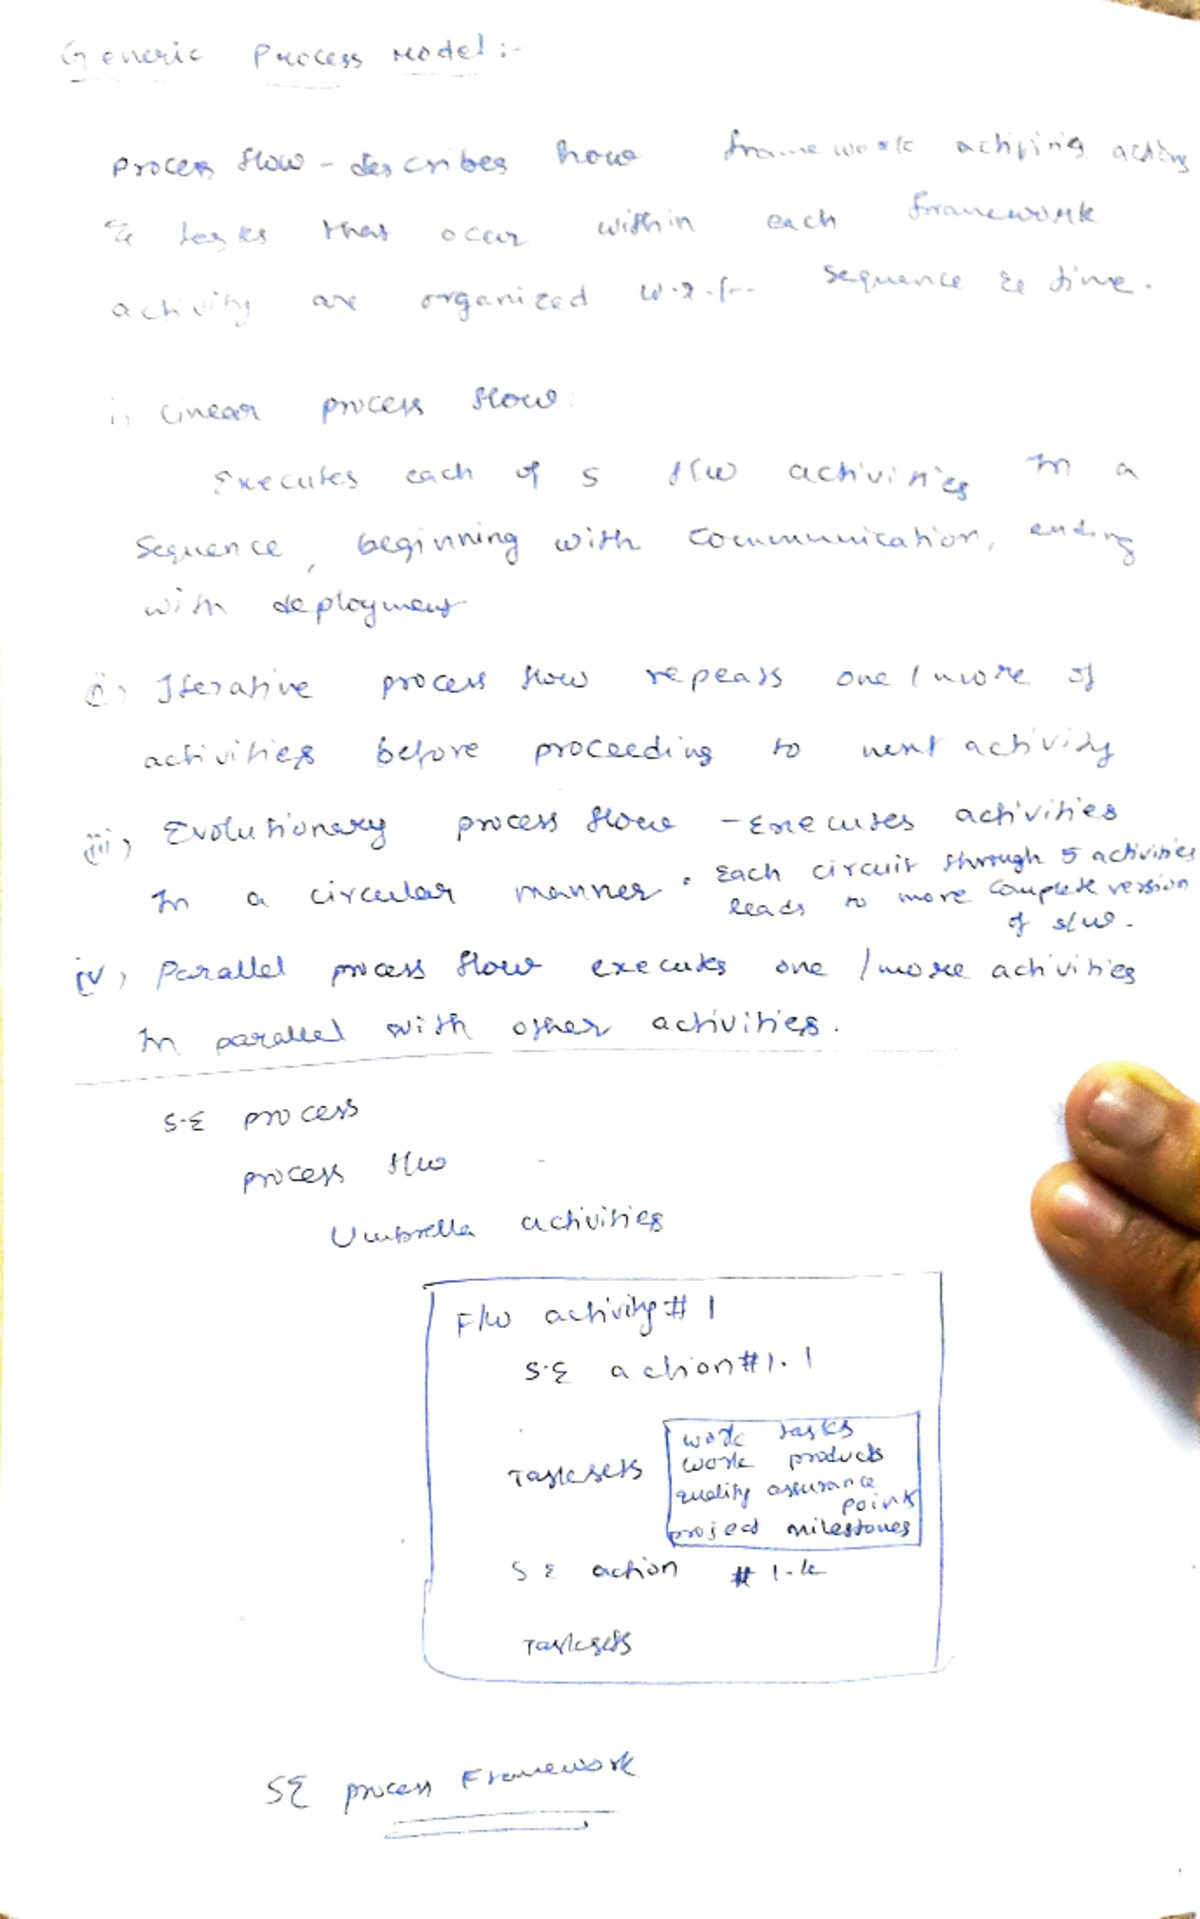 Generic Process Model :-
Process flow - describes how framework actions
& tasks that occur within each framework
activity are organized w.r.t sequence & time.
i, Linear process flow:
Executes each of 5 f/w activities in a
sequence, beginning with communication, ending
with deployment
ii, Iterative process flow repeats one / more of
activities before proceeding to next activity
iii, Evolutionary process flow - Executes activities
In a circular manner. Each circuit through 5 activities
leads to more complete version
of s/w.
iv, Parallel process flow executes one / more activities
In parallel with other activities.
S-E process
process f/w
Umbrella activities
F/W activity # 1
S.E action #1.1
Tasksets
work tasks
work products
quality assurance
points
project milestones
S E action # 1.k
Tasksets
SE process Framework